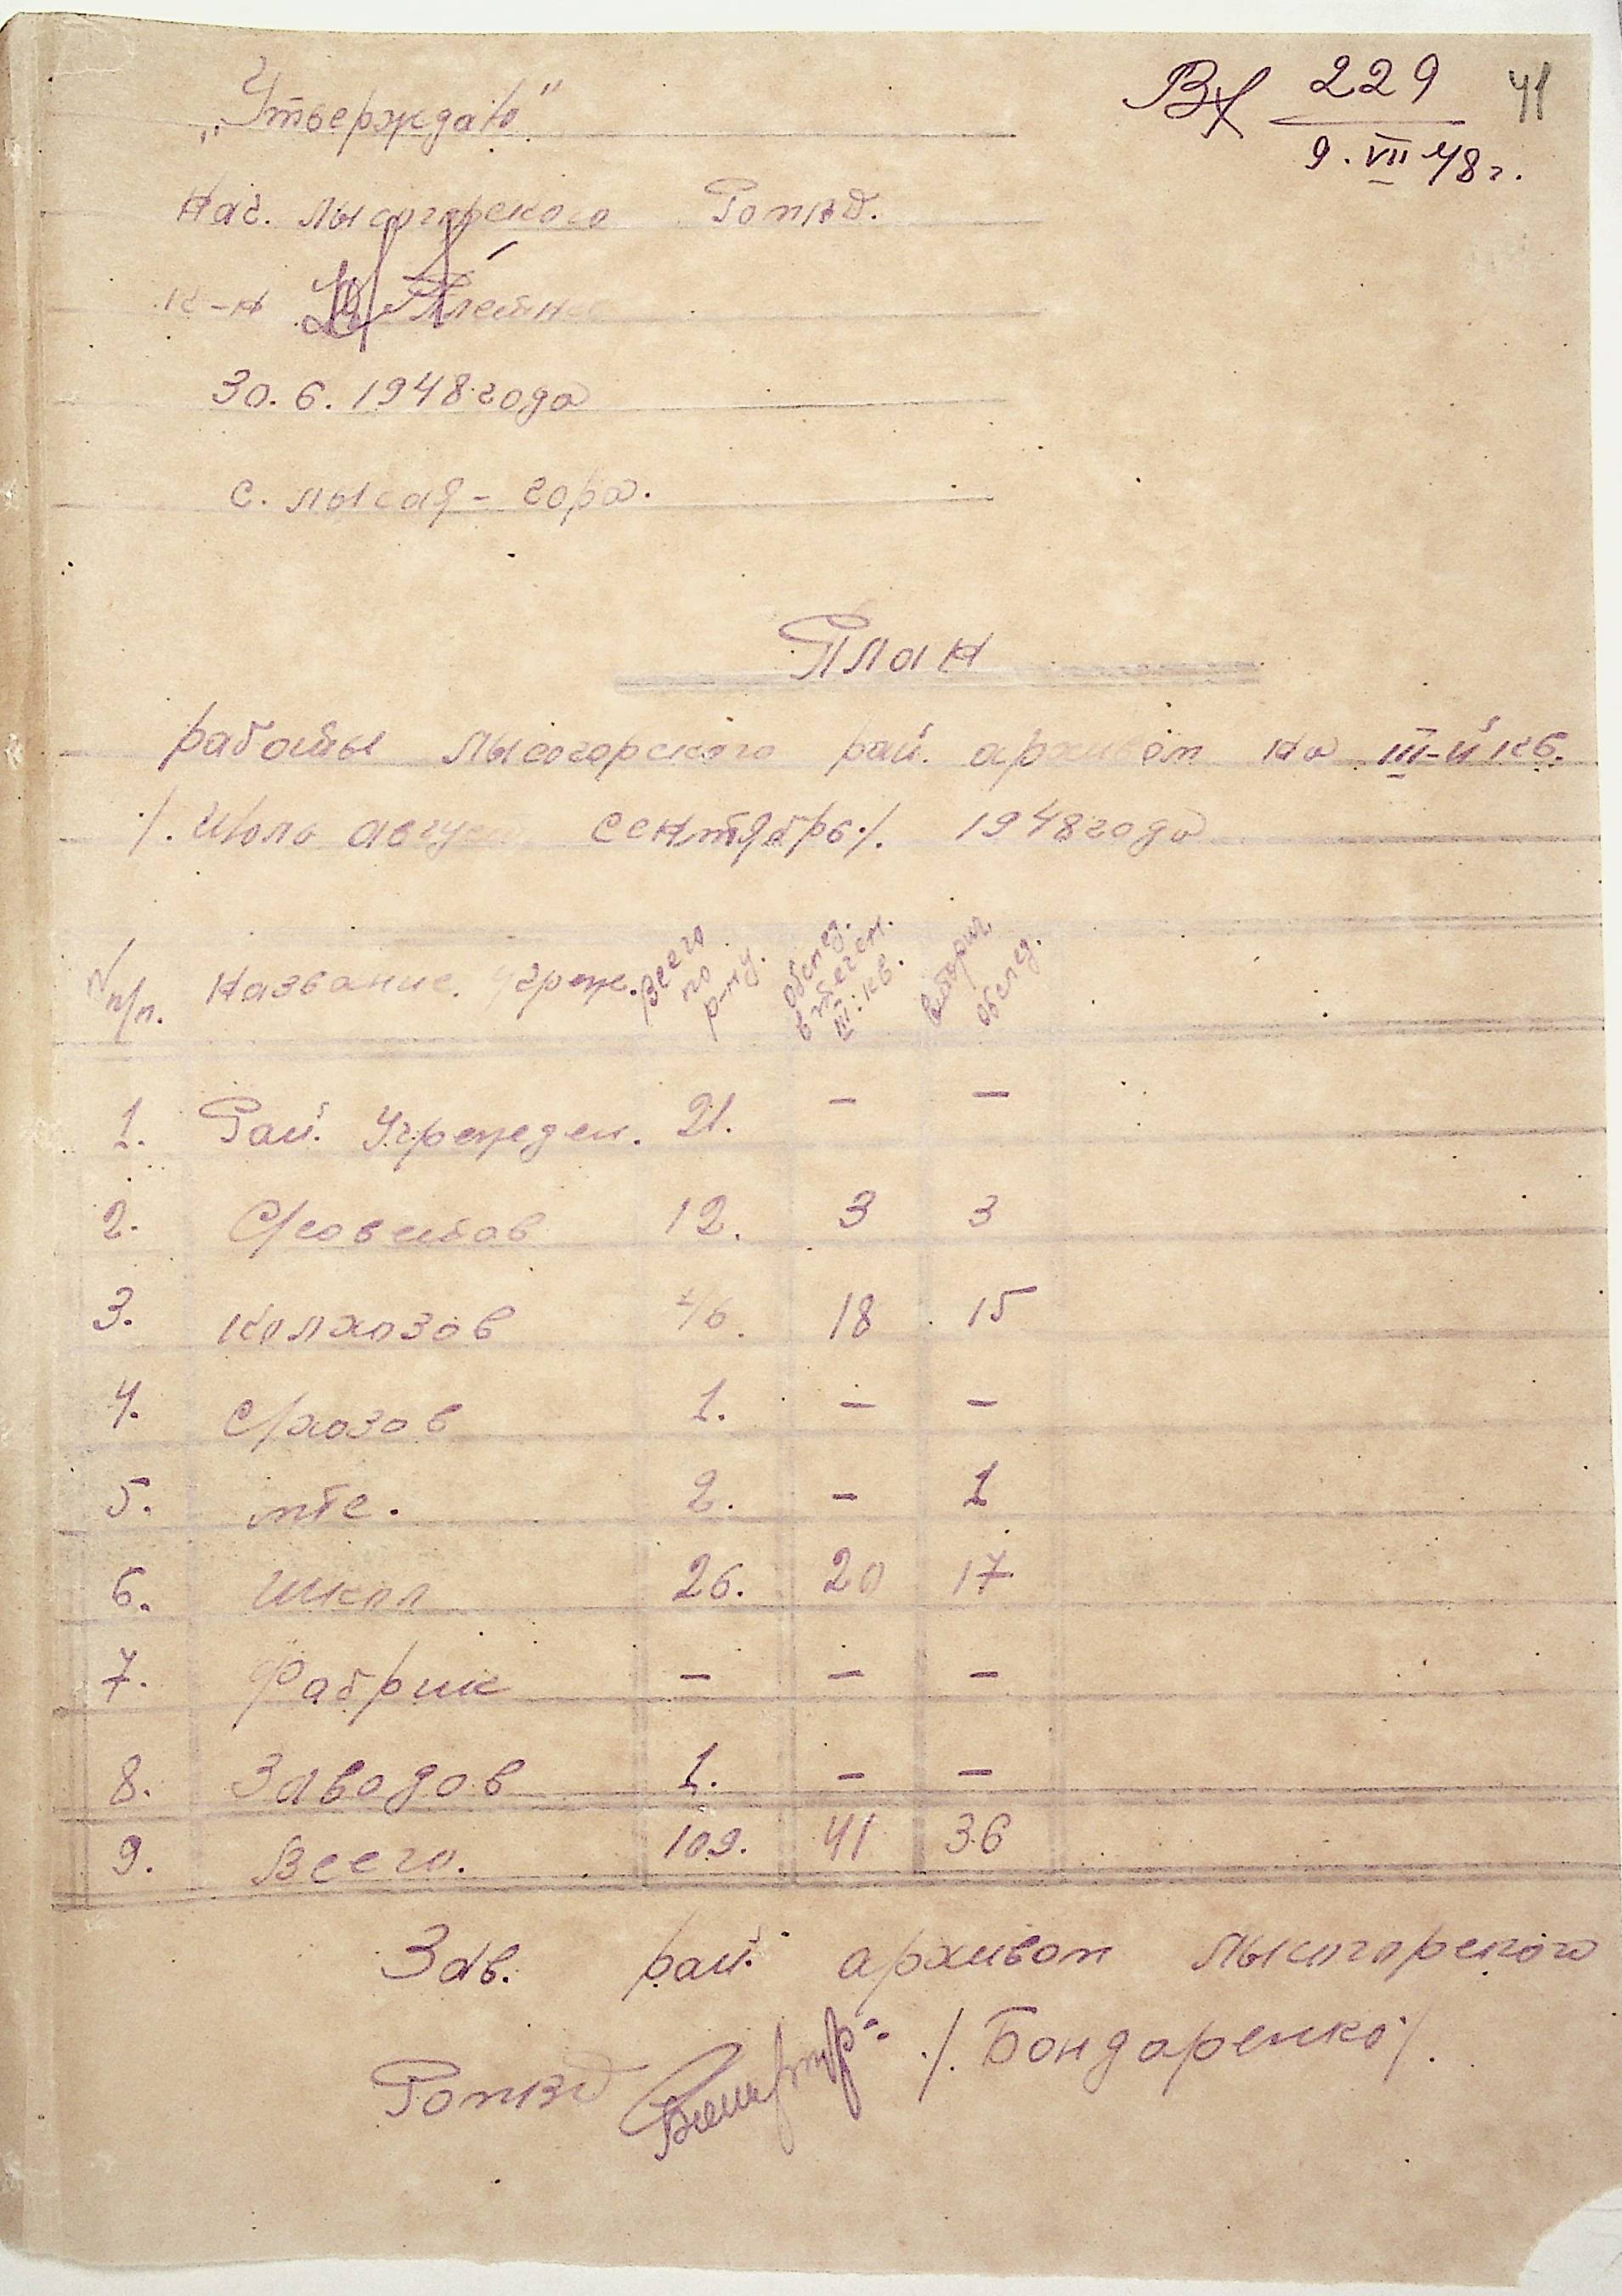 Вх 229 41
9. VII 48 г.
„Утверждаю“
Нач. Лысогорского РОМВД.
к-н
30. 6. 1948 года
с. Лысая-гора.
План
работы Лысогорского рай. архивом на III-й кв.
/. Июль август сентябрь/. 1948 года
N п/п. Название учреж. Всего по р-ну. Обслед. в течен. III. кв. вторич. обслед.
1. Рай. Учрежден. 21. – –
2. С/советов 12. 3 3
3. Колхозов 46. 18 15
4. С/хозов 1. – –
5. мтс. 2. – 1
6. Школ 26. 20 17
7. Фабрик – – –
8. Заводов 1. – –
9. Всего. 109. 41 36
Зав. рай. архивом Лысогорского
РОМВД /. Бондаренко/.